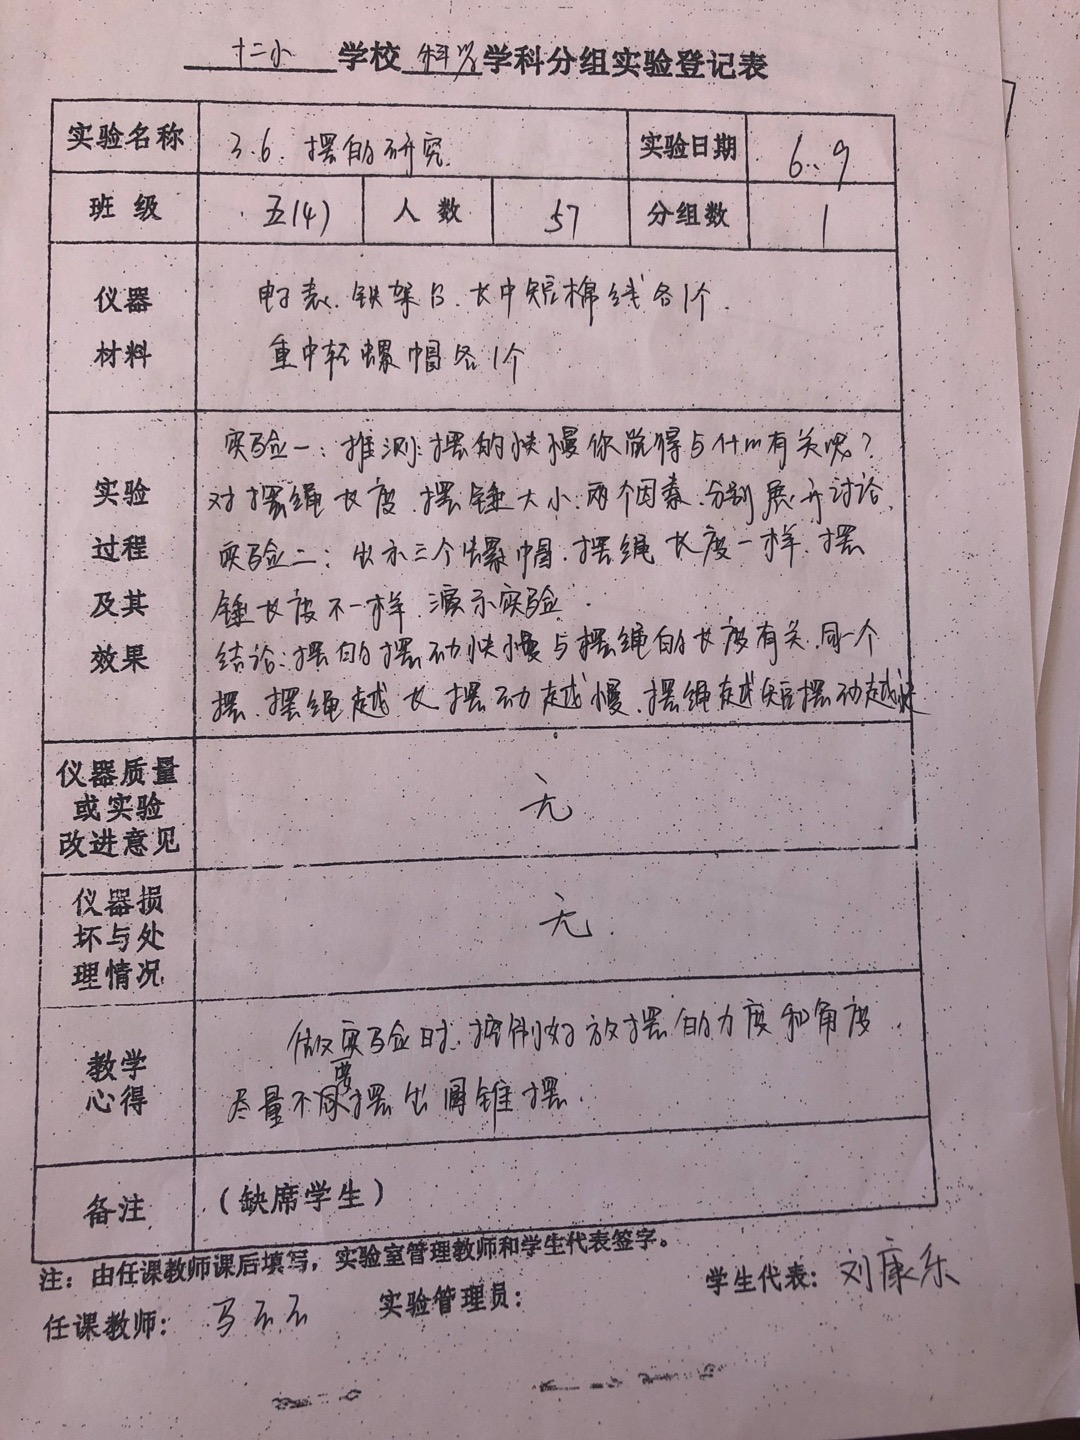 十二小 学校 科学 学科分组实验登记表
实验名称 3.6. 摆的研究 实验日期 6.9
班级 五(4) 人数 57 分组数 1
仪器材料
电子表、铁架台、长中短棉线各1个.
重中轻螺帽各1个
实验过程及其效果
实验一：推测：摆的快慢你觉得与什么有关呢？
对摆绳长度、摆锤大小、两个因素、分别展开讨论.
实验二：出示三个螺帽、摆绳长度一样、摆
锤长度不一样、演示实验.
结论：摆的摆动快慢与摆绳的长度有关、同一个
摆、摆绳越长摆动越慢、摆绳越短摆动越快
仪器质量或实验改进意见 无
仪器损坏与处理情况 无.
教学心得
做实验时、控制好放摆的力度和角度.
尽量不要摆出圆锥摆.
备注 （缺席学生）
注：由任课教师课后填写，实验室管理教师和学生代表签字。
任课教师： 实验管理员： 学生代表：刘康乐